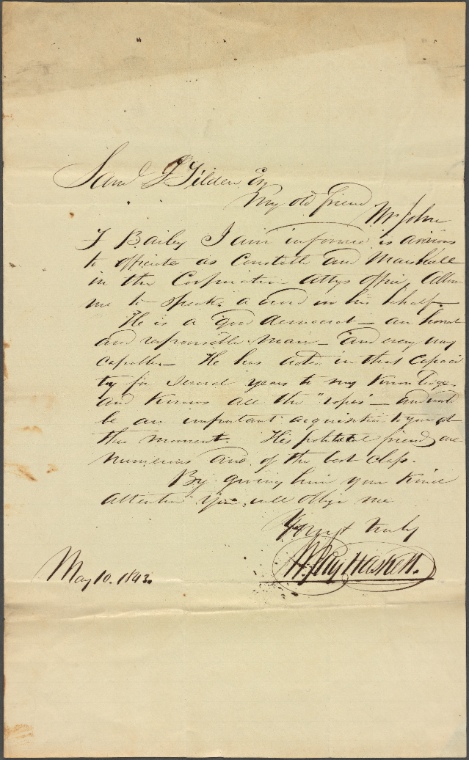 Saml J Tilden Esq
My old friend Mr John
T Bailey I am informed is anxious
to officiate as Constable and Marshall
in the Corporation Attys office. Allow
me to speak a word in his behalf—
He is a good democrat— an honest
and responsible man— and every way
capable— He has acted in that capaci
ty for several years to my knowledge
and knows all the "ropes"— and will
be an important acquisition to you at
this moment. His political friends are
numerous and of the best class.
By giving him your kind
attention you will oblige me
Yours truly
Haskett.
May 10. 1842